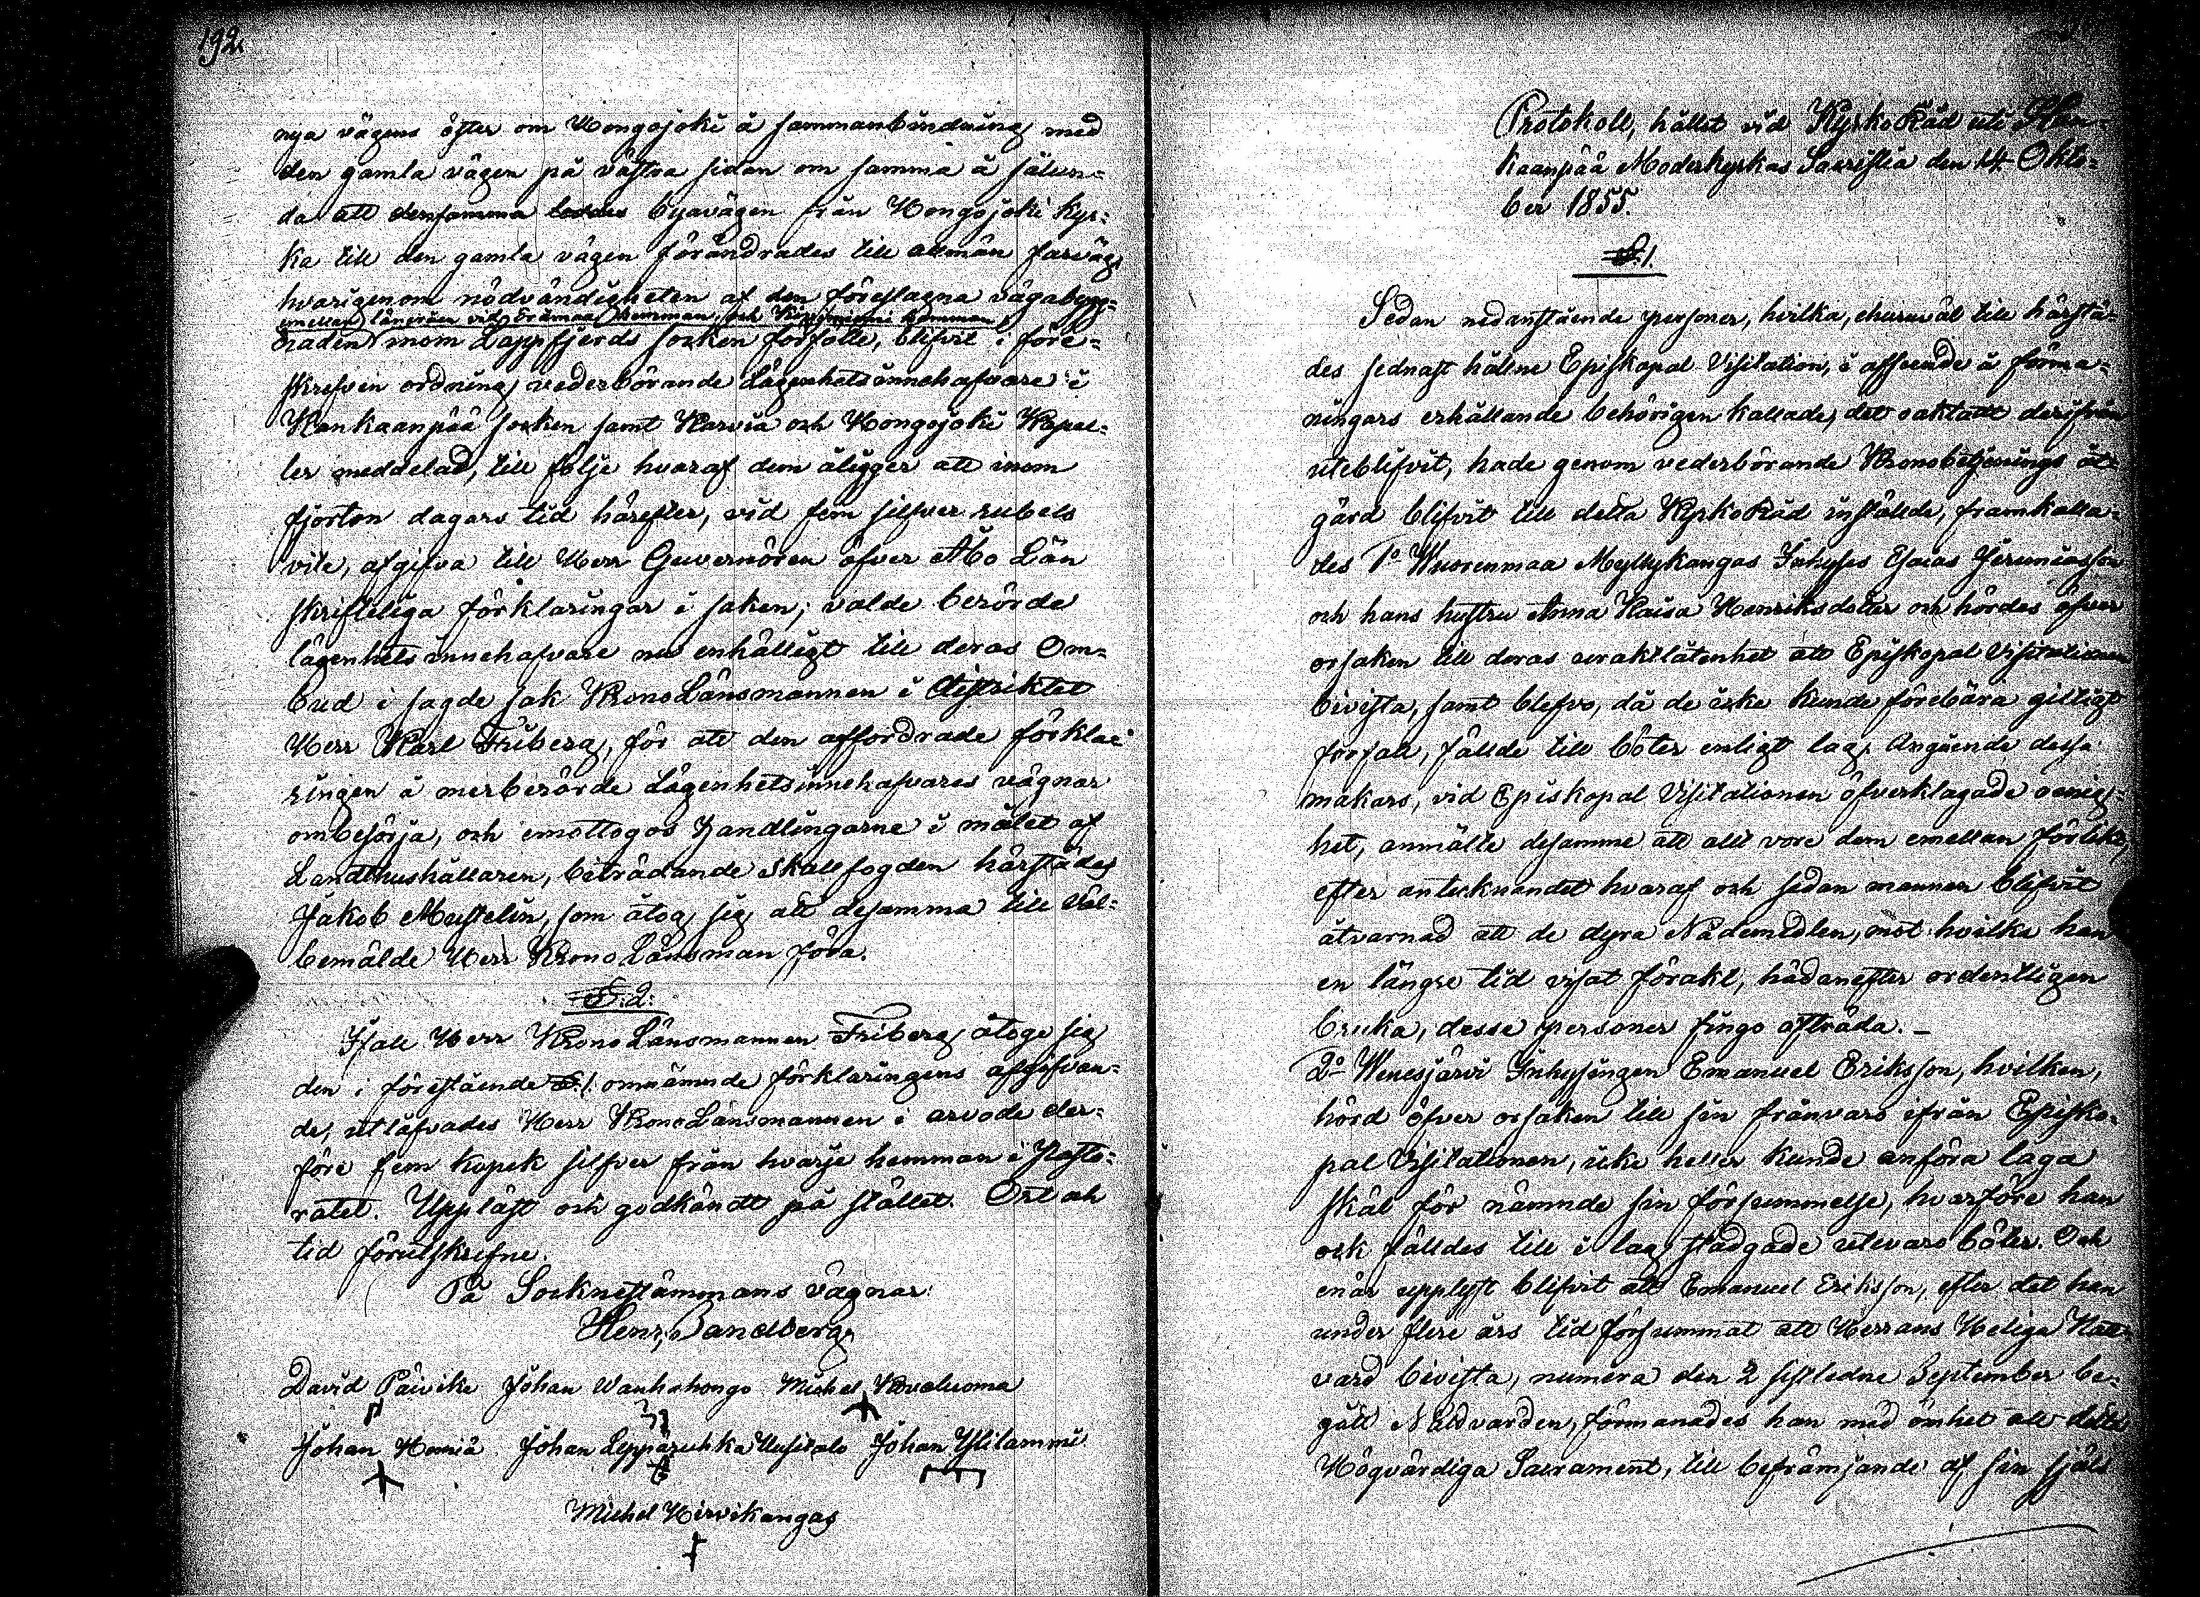 192.
nya vägens öfter om Hongojoki å sammanbindning med
den gamla vägen på västra sidan om samma å sålun-
da att densamma byavägen från Hongojoki Kyr-
ka till den gamla vägen förändrades till allmän farväg,
hvarigenom nödvändigheten af den föreslagna vägabygg-
emellan länsrån vid hemman, och hemman
naden inom Lappfjerds socken förfölle, blifvit i före-
skrefven ordning vederbörande Lägenhetsinnehafvare i
Kankaanpää socken samt Karvia och Hongojoki Kapel-
ler meddelad, till följe hvaraf dem åligger att inom
fjorton dagars tid härefter, vid fem silfver rubels
vite, afgifva till Herr Guvernören öfver Åbo Län
skrifteliga förklaringar i saken; valde berörde
lägenhets innehafvare nu enhälligt till deras Om-
bud i sagde sak KronoLänsmannen i distriktet
Herr Karl Friberg, för att den affordrade förkla-
ringen å merberörde Lägenhetsinnehafvares vägnar
ombesörja, och emottogos handlingarne i målet af
Landthushållaren, biträdande Skallfogden härstädes
Jakob Mustelin, som åtog sig att desamma till Väl-
bemälde Herr KronoLänsman föra.
§. 2.
Ifall Herr KronoLänsmannen Friberg åtoge sig
den i förestående §. 1. omnämnde förklaringens afgifvan-
de, utlåfvades Herr KronoLänsmannen i arvode der-
före fem kopek silfver från hvarje hemman i Pasto-
ratet. Uppläst och godkändt på stället. Ort och
tid förutskrefne.
På Sockneståmmans vägnar:
Henr. Sandberg.
David Päivike Johan Wanhahongo Michel Kovaluoma
Johan Hamiä Johan Lepparuhka Uusitalo Johan Ylilammi
Michel Hirvikangas
Protokoll, hållet vid KyrkoRåd uti Kan-
kaanpää Moderkyrkas Sacristia den 14 Okto-
ber 1855.
§. 1.
Sedan nedanstående personer, hvilka, ehuruväl till härstä-
des sednast hållne Episkopal Visitation, i afseende å förma-
ningars erhållande behörigen kallade, det oaktadt derifrån
uteblifvit, hade genom vederbörande Kronobetjenings åt-
gärd blifvit till detta KyrkoRåd instälde, framkalla-
des 1o Wuorenmaa Myllykangas Inhyses Esaias Jeremiasson
och hans hustru Anna Kaisa Henriksdotter och hördes öfver
orsaken till deras uraktlåtenhet att Episkopal Visitationen
bivista, samt blefvo, då de icke kunde förebära giltigt
förfall, fällde till böter enligt lag. Angående dessa
makars, vid Episkopal Visitationen öfverklagade oenig-
het, anmälte desamme att allt vore dem emellan förlikt,
efter antecknandet hvaraf och sedan mannen blifvit
åtvarnad att de dyra Nådemedlen, mot hvilka han
en längre tid visat förakt, hädanefter ordentligen
bruka, desse personer fingo afträda. —
2o Wenesjärvi Inhysingen Emanuel Eriksson, hvilken,
hörd öfver orsaken till sin frånvaro ifrån Episko-
pal Visitationen, icke heller kunde anföra laga
skäl för nämnde sin försummelse, hvarföre han
ock fälldes till i lag stadgade utevaro böter. Och
enär upplyst blifvit att Emanuel Eriksson, efter det han
under flere års tid försummat att Herrans Heliga Natt-
vard bivista, numera den 2 sistledne September be-
gått Nattvarden, förmanades han med ömhet att detta
Högvärdiga Sacrament, till befrämjande af sin själs